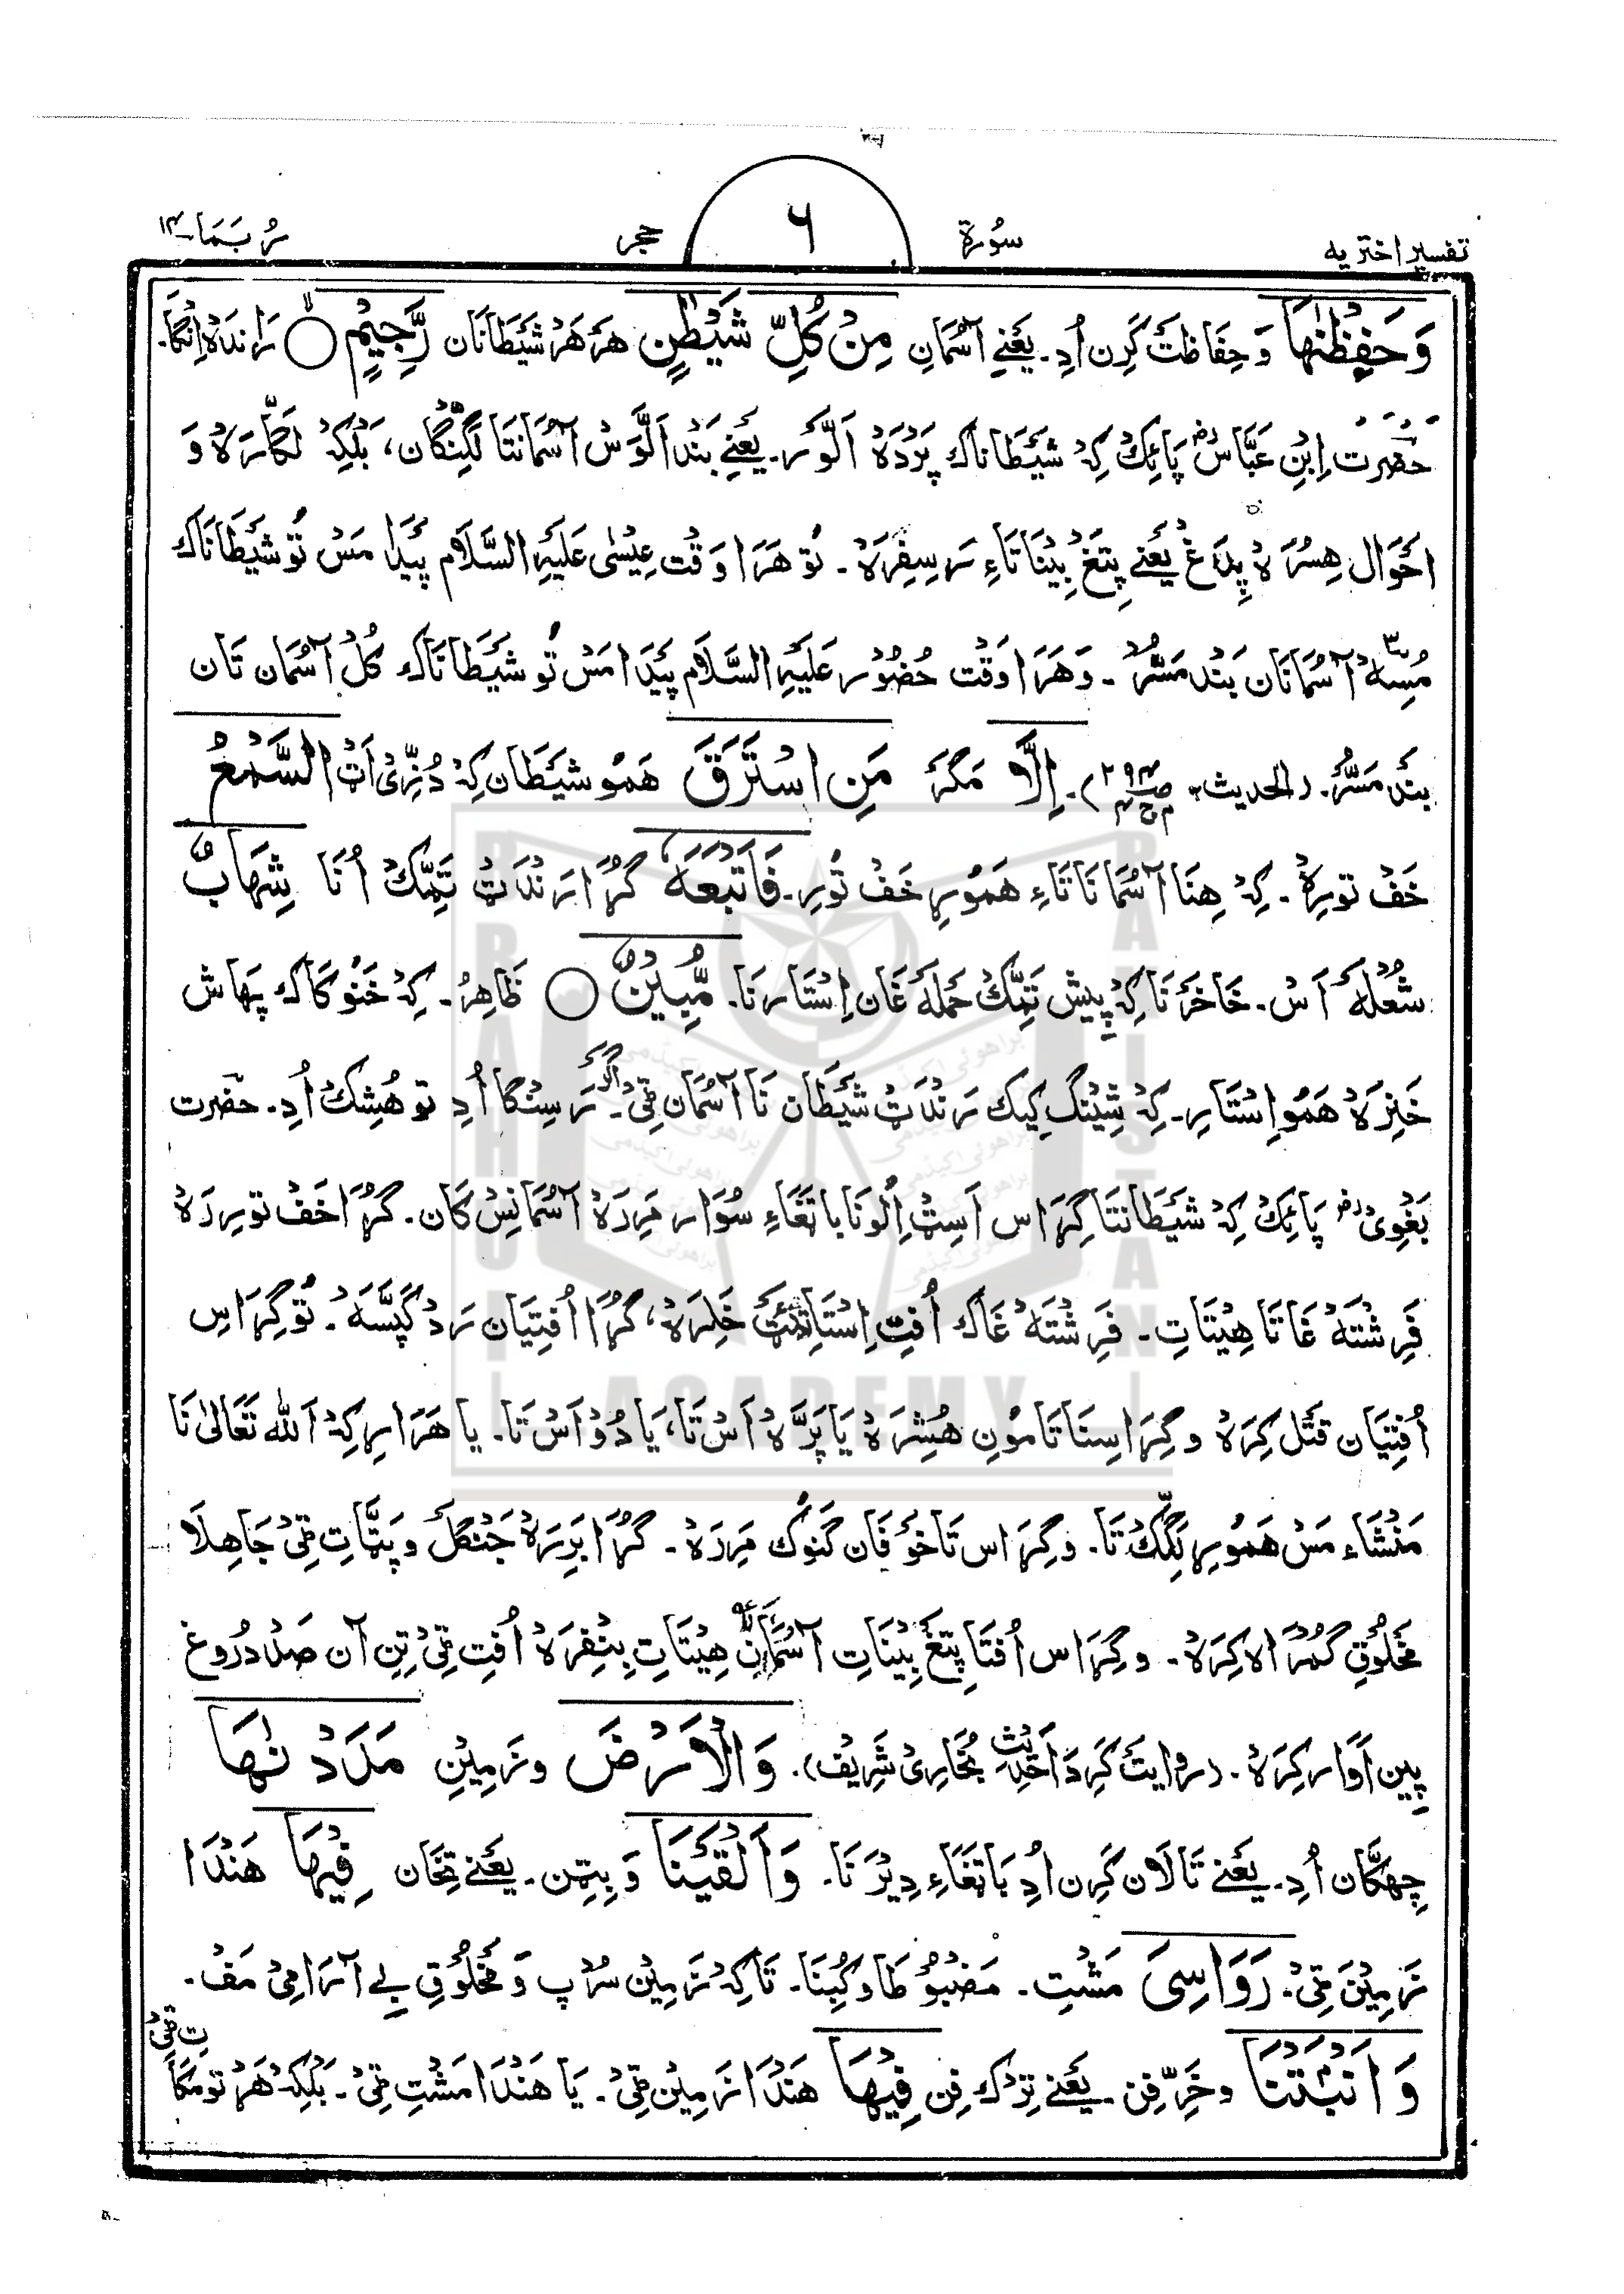 تفسیر اختریه سُورة ٦ حجر رُبَمَا ۱۴
وَحَفِظْنٰهَا وَحِفَاظَتَ کَرِن اُدِ۔ یَعْنِے آسْمَانِ مِنْ کُلِّ شَیْطٰنٍ هَر هَرْ شَیَطَانَان رَّجِیْمٍ ○ رَانْدَهْ اِنْگَا۔
حضرت اِبْنِ عَبَّاسؓ پَائِکْ کِہْ شَیَطَاناک پَرْدَهْ اَلَّوْر۔ یَعْنِے بَنْد اَلَّوْس آسْمَانتَا لَگِنْگَان، بَلْکِہْ لَگَّارَهْ وَ
اَحْوَال هِسُرَهْ پِدَاغْ یَعْنِے پِتَغْ بِیْنَاتَاءِ رَسِفِرَهْ۔ تُوْ هَرَا وَقْت عِیْسٰی عَلَیْہِ السَّلَام پَیْدَا مَسْ تُوْ شَیَطَانَاک
مُسِہْ آسْمَانَان بَنْد مَسُّرْ۔ وَهَرَا وَقْت حُضُوْر عَلَیْہِ السَّلَام پَیْدَا مَسْ تُوْ شَیَطَانَاک کُلْ آسْمَان تَان
بَنْد مَسُّرْ۔ (الحدیث۔ ). اِلَّا مَگَرْ مَنِ اسْتَرَقَ هَمُو شَیَطَان کِہْ دُزِّیْ اَٹ السَّمْعَ
خَفْ تورِ۔ کِہْ هِنَا آسْمَانَا تَاءِ هَمُوْرِ خَفْ تُوْرِ۔ فَاَتْبَعَهٗ گُرَا رَنْدَٹ تَمِّکْ اُنَا شِهَابٌ
شُعْلَہْ اَسْ۔ خَاخَرْنَا کِہْ پِیْش تَمِّکْ حَمْلَہْ غَان اِسْتَارنَا۔ مُّبِیْنٌ ○ ظَاهِرْ۔ کِہْ خَنُوْکَاک پَهَاش
خَنِرَهْ هَمُو اِسْتَارِ۔ کِہْ شِیْنْگ کِیک رَنْدَٹ شَیَطَان نَا آسْمَان ٹِیْ۔ اگر رَسِنْگا اُدِ تو هُشِکْ اُدِ۔ حضرت
بَغْوِیْؓ پَائِکْ کِہْ شَیَطَانتَا گِرَاس اَسِٹْ اِلونَا بَاتِغَاءِ سُوَار مَرِرَهْ آسْمَانِسْکَان۔ گُرَا خَفْ تورِرَهْ
فَرِشْتَہْ غَاتَا هِیْتَاتِ۔ فَرِشْتَہْ غَاک اُفْتِ خَلِرَهْ، گُرَا اُفْتِیَان رَدْ کَپِسَّہ۔ تُوْ گِرَاسِ
اُفْتِیَان قَتْل کِرَهْ وگِرَاسِنَا تَا مُوْنِ هُشِرَهْ یَا پَرَّهْ اَسْ تَا، یَا دُوْ اَسْ تَا۔ یا هَرَارِ کِہْ اَللہ تَعَالٰی نَا
مَنْشَاء مَسْ هَمُوْرِ لَگِّکْ تَا۔ وگِرَاس تَا خَوْفَان گَنُوْک مَرِرَهْ۔ گُرَا بَرِرَهْ جَنْگَل وپَٹَّاتِ ٹِیْ جَاهِلَا
مَخْلُوْقِ گُمْرَاہ کِرَهْ۔ وگِرَاس اُفْتَا پِتَغْ بِیْنَاتِ هِیْتَاتِ بِنْفِرَهْ اُفْتِ ٹِیْ تِن آن صَدْ دُرُوغ
پِین اَوَار کِرَهْ۔ (روایت کَرِدْ اَحَدِیْث بُخَارِیْ شَرِیْف). وَالْاَرْضَ وزَمِیْنِ مَدَدْنٰهَا
چِهکَّان اُدِ۔ یَعْنِے تَالَان کَرِن اُدِ بَاتِغَاءِ دِیْرنَا۔ وَاَلْقَیْنَا وَبِٹِن۔ یَعْنِے تِخَان فِیْهَا هَنْدَا
زَمِیْن ٹِیْ۔ رَوَاسِیَ مَشْتِ۔ مَضْبُوْطَا وکُبِنَا۔ تَاکِہْ زَمِیْن سُرْپ وَ مَخْلُوْقِ بے آرَامِیْ مَفْ۔
وَاَنْبَتْنَا وخَرِّفِن۔ یَعْنِے تِزْک فِن فِیْهَا هَنْدَا زَمِیْن ٹِیْ۔ یَا هَنْدَا مَشْتِ ٹِیْ۔ بَلْکِہْ هَرْتومَکَا
تِ ٹِیْ
BRAHUI ACADEMY PAKISTAN